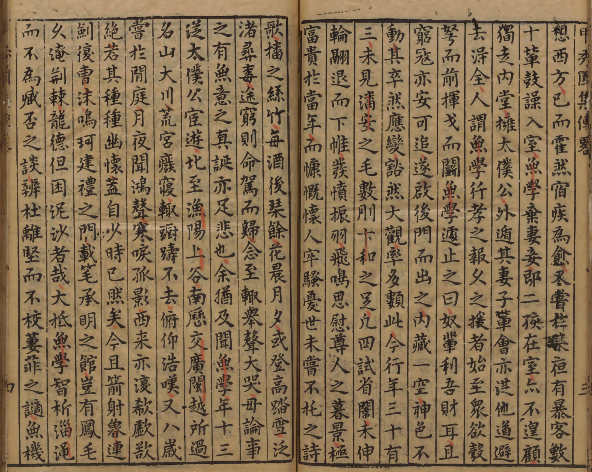 想西方已而霍然宿疾為愈不嘗於昏夜桓有暴客數
十輩鼓譟入室魚學棄妻妾即二孩在室亦不遑顧
獨走內堂擁太僕公外遁其妻子輩會亦從他道避
去得全人謂魚學行孝之報久之援者始至眾欲彀
弩而前揮戈而闘魚學遽止之曰奴輩利吾財耳且
窮寇亦安可追遂啟後門而出之內藏一空神色不
動其卒然應變豁然大觀率多類此今行年三十有
三未見潘安之毛數刖卞和之足凡四試省闈未伸
輪翮退而下帷發憤振羽飛鳴思慰尊人之暮景極
富貴於當年而慷慨懷人牢騷憂世未嘗不托之詩
歌播之絲竹每酒後琴餘花晨月夕或登高踏雪泛
渚尋春途窮則命駕而歸念至輒舉聲大哭毋論事
之有無意之真誕亦足悲也余猶及聞魚學年十三
從太僕公宦遊北至漁陽上谷南歷交廣閩越所過
名山大川荒宮廢寢輒躊躇不去俯仰浩嘆又八歲
嘗於閒庭月夜聞鴻聲寒唳孤影西來亦淒欷歔欲
絕若其種種幽懷蓋自少時已然矣今且箭射魯連
劍復曹沫鳴珂建禮之門載筆承明之館豈有鳳毛
久淹荊棘龍德但困泥沙者哉大抵魚學智析淄澠
而不為臧否之談辨杜離堅而不校萋菲之謫魚機